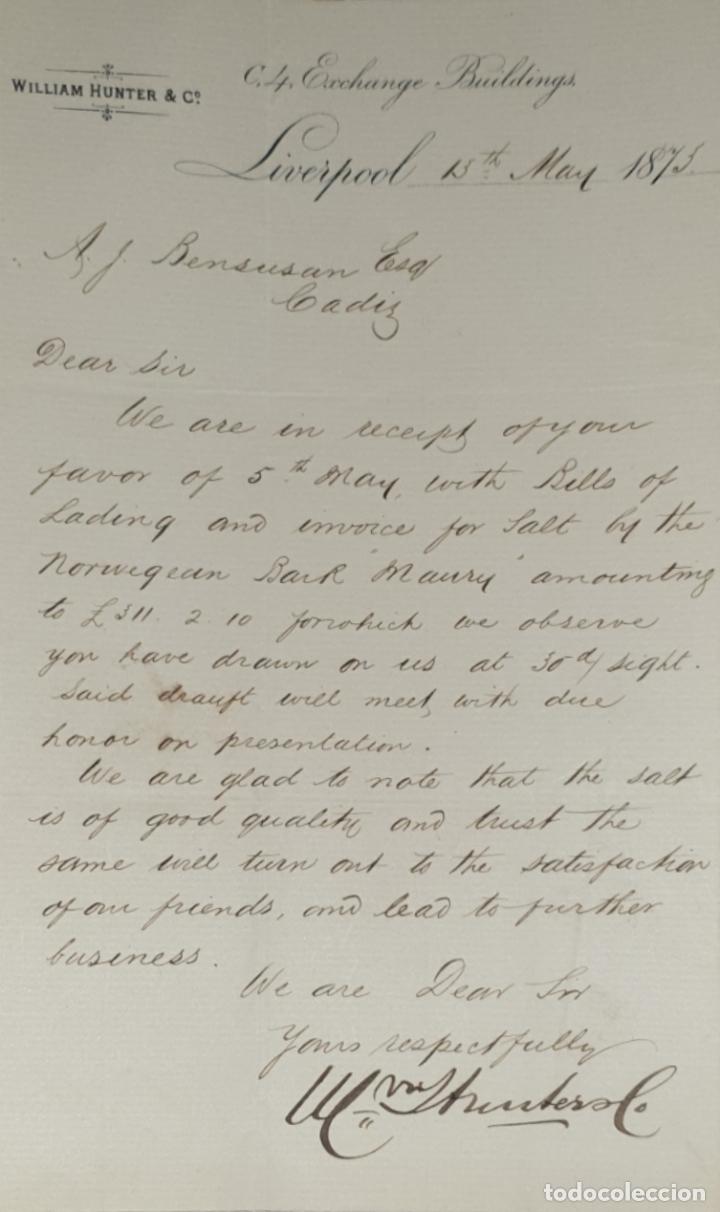 WILLIAM HUNTER & Co.
C.4. Exchange Buildings.
Liverpool 15th May 1875
A. J. Bensusan Esq
Cadiz
Dear Sir
We are in receipt of your
favor of 5th May, with Bills of
Lading and invoice for Salt by the
Norwegean Bark "Maury" amounting
to £311. 2. 10 for which we observe
you have drawn on us at 30 d/ sight.
Said drauft will meet with due
honor on presentation.
We are glad to note that the salt
is of good quality and trust the
same will turn out to the satisfaction
of our friends, and lead to further
business.
We are Dear Sir
Yours respectfully
Wm Hunter & Co
todocoleccion